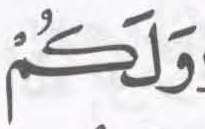 وَلَكُمْ